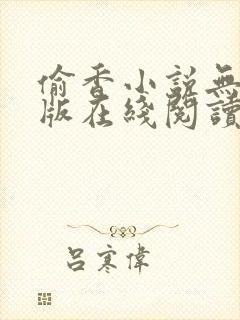 偷香小說無
版在綫閱讀
呂寒偉